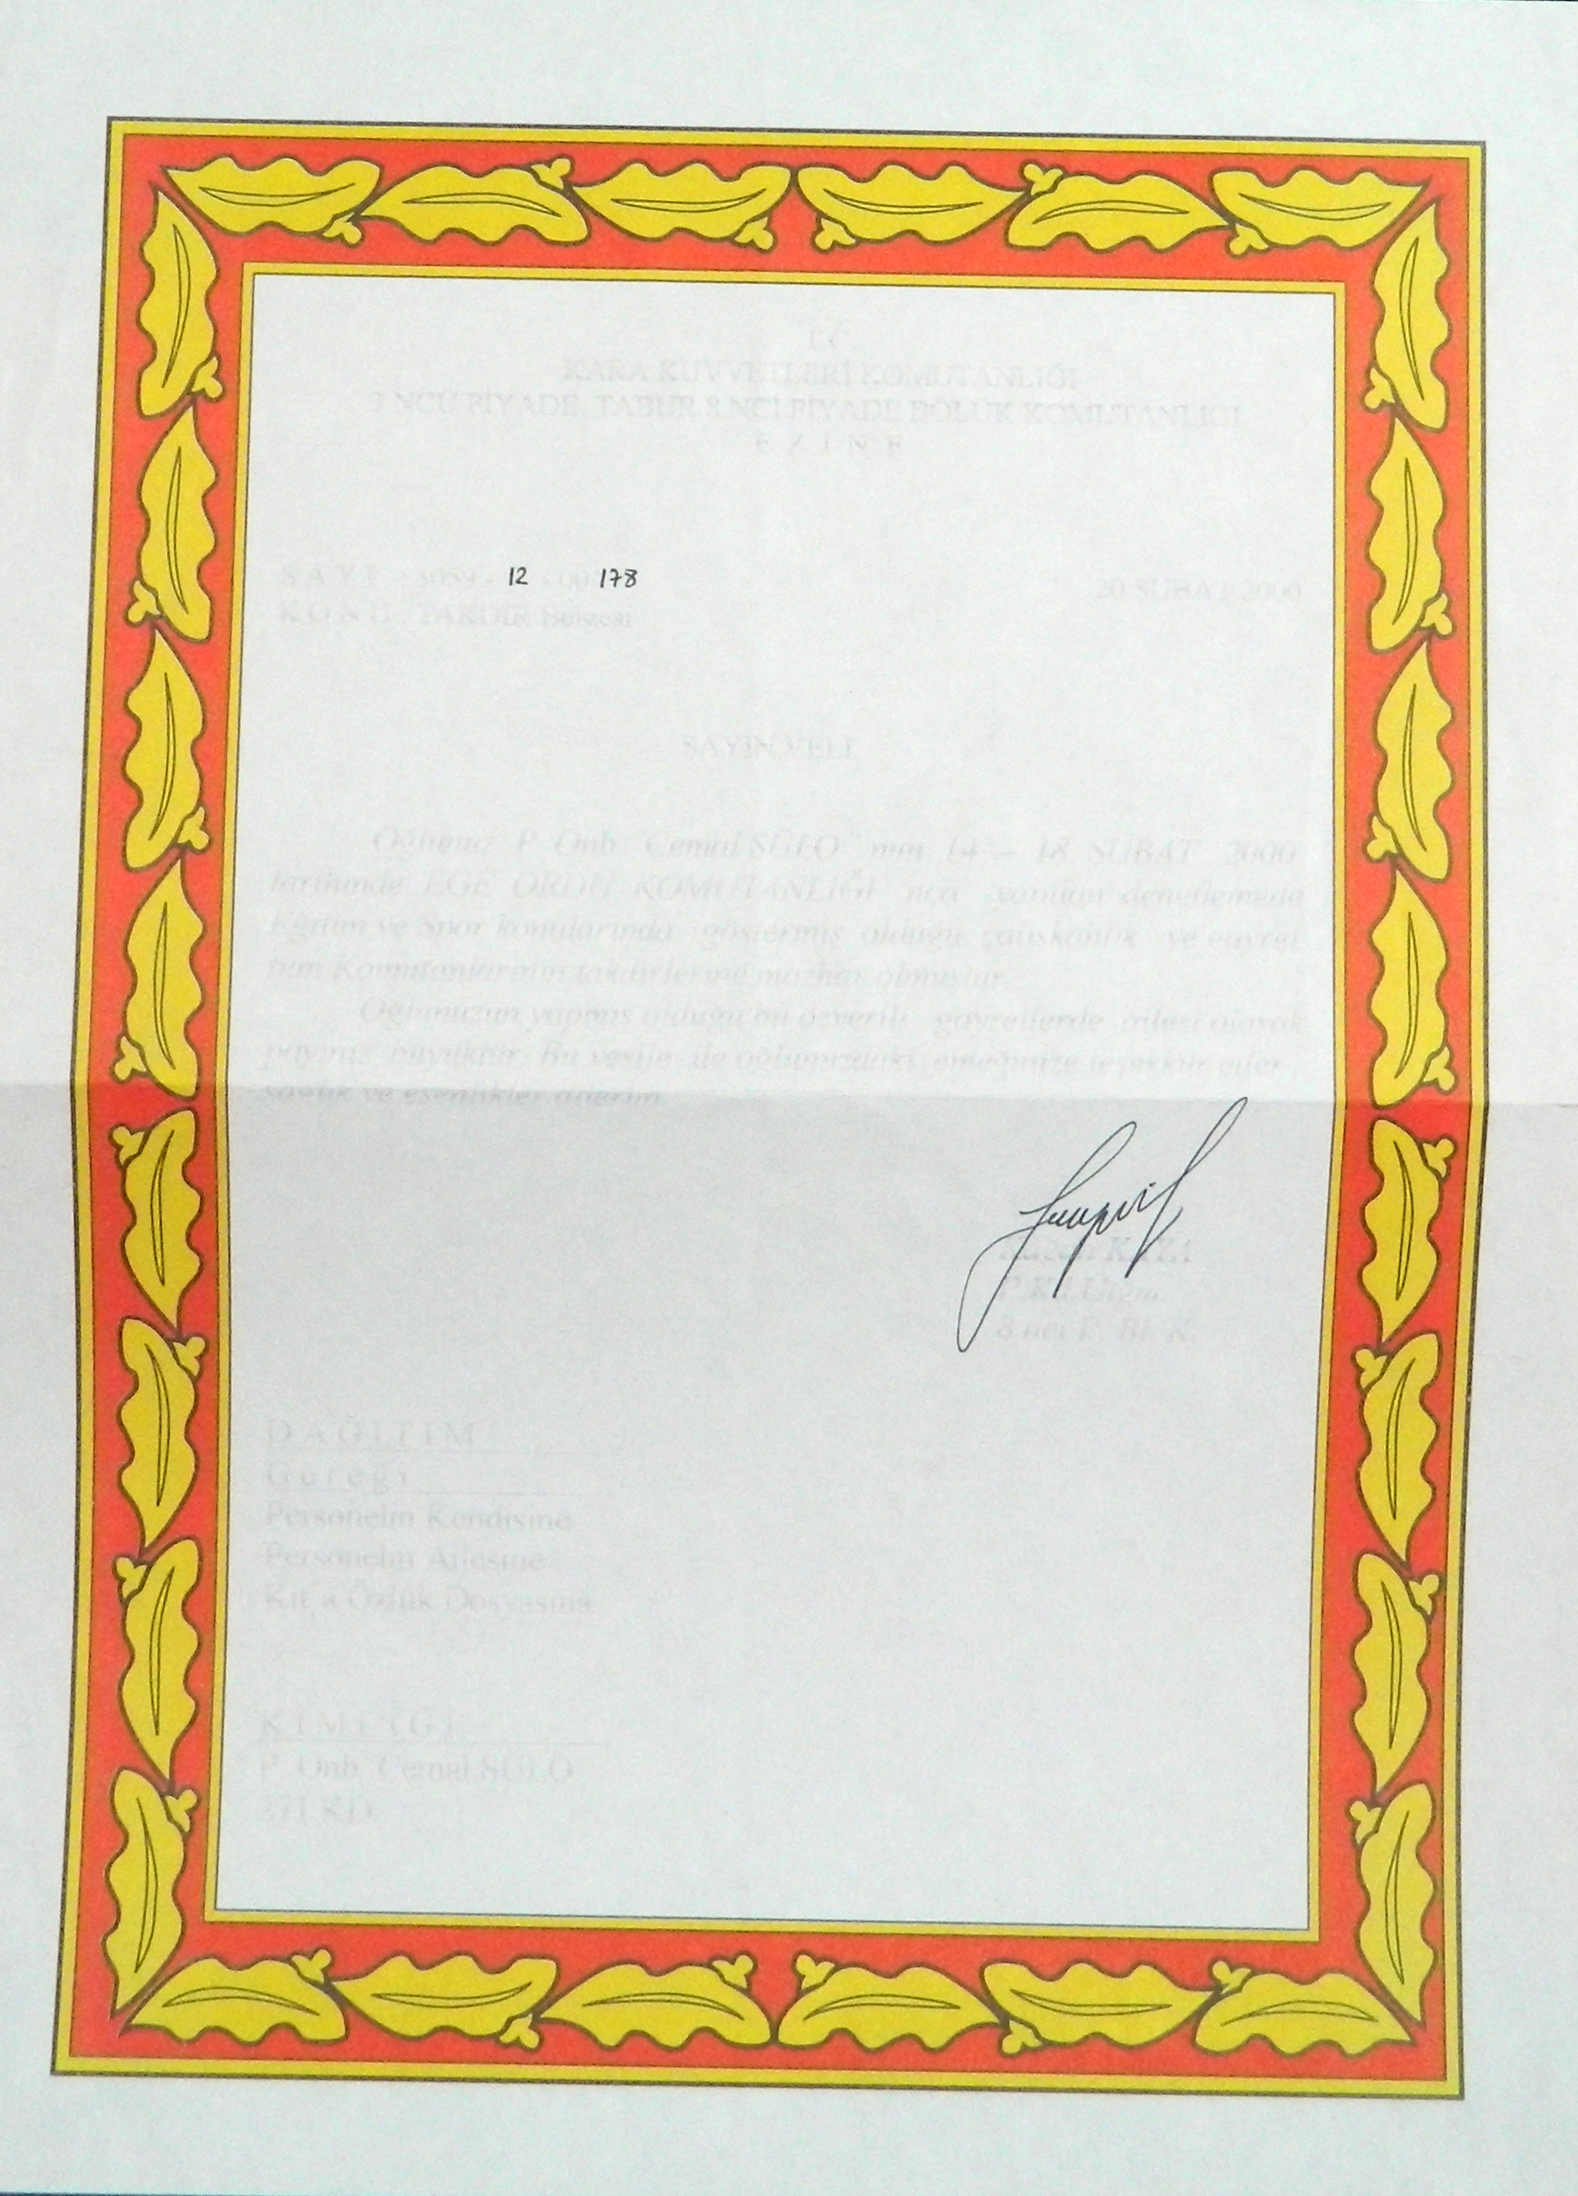 T.C.
KARA KUVVETLERİ KOMUTANLIĞI
3 NCÜ PİYADE TABUR 8 NCİ PİYADE BÖLÜK KOMUTANLIĞI
E Z İ N E
S A Y I : 3059 - 12 - 00/ 178 20 ŞUBAT 2000
K O N U : TAKDİR Belgesi
SAYIN VELİ
Oğlunuz P. Onb. Cemal SÜLO 'nun 14 – 18 ŞUBAT 2000
tarihinde EGE ORDU KOMUTANLIĞI 'nca yapılan denetlemede
Eğitim ve Spor konularında göstermiş olduğu çalışkanlık ve gayret
tüm Komutanlarının takdirlerine mazhar olmuştur.
Oğlunuzun yapmış olduğu bu özverili gayretlerde ailesi olarak
payınız büyüktür. Bu vesile ile oğlunuzdaki emeğinize teşekkür eder
sağlık ve esenlikler dilerim.
KAYA
P.Kd.Ütğm.
8 nci P. Bl. K.
D A Ğ I T I M
G e r e ğ i
Personelin Kendisine
Personelin Ailesine
Kıt'a Özlük Dosyasına
K İ M L İ Ğ İ
P. Onb. Cemal SÜLO